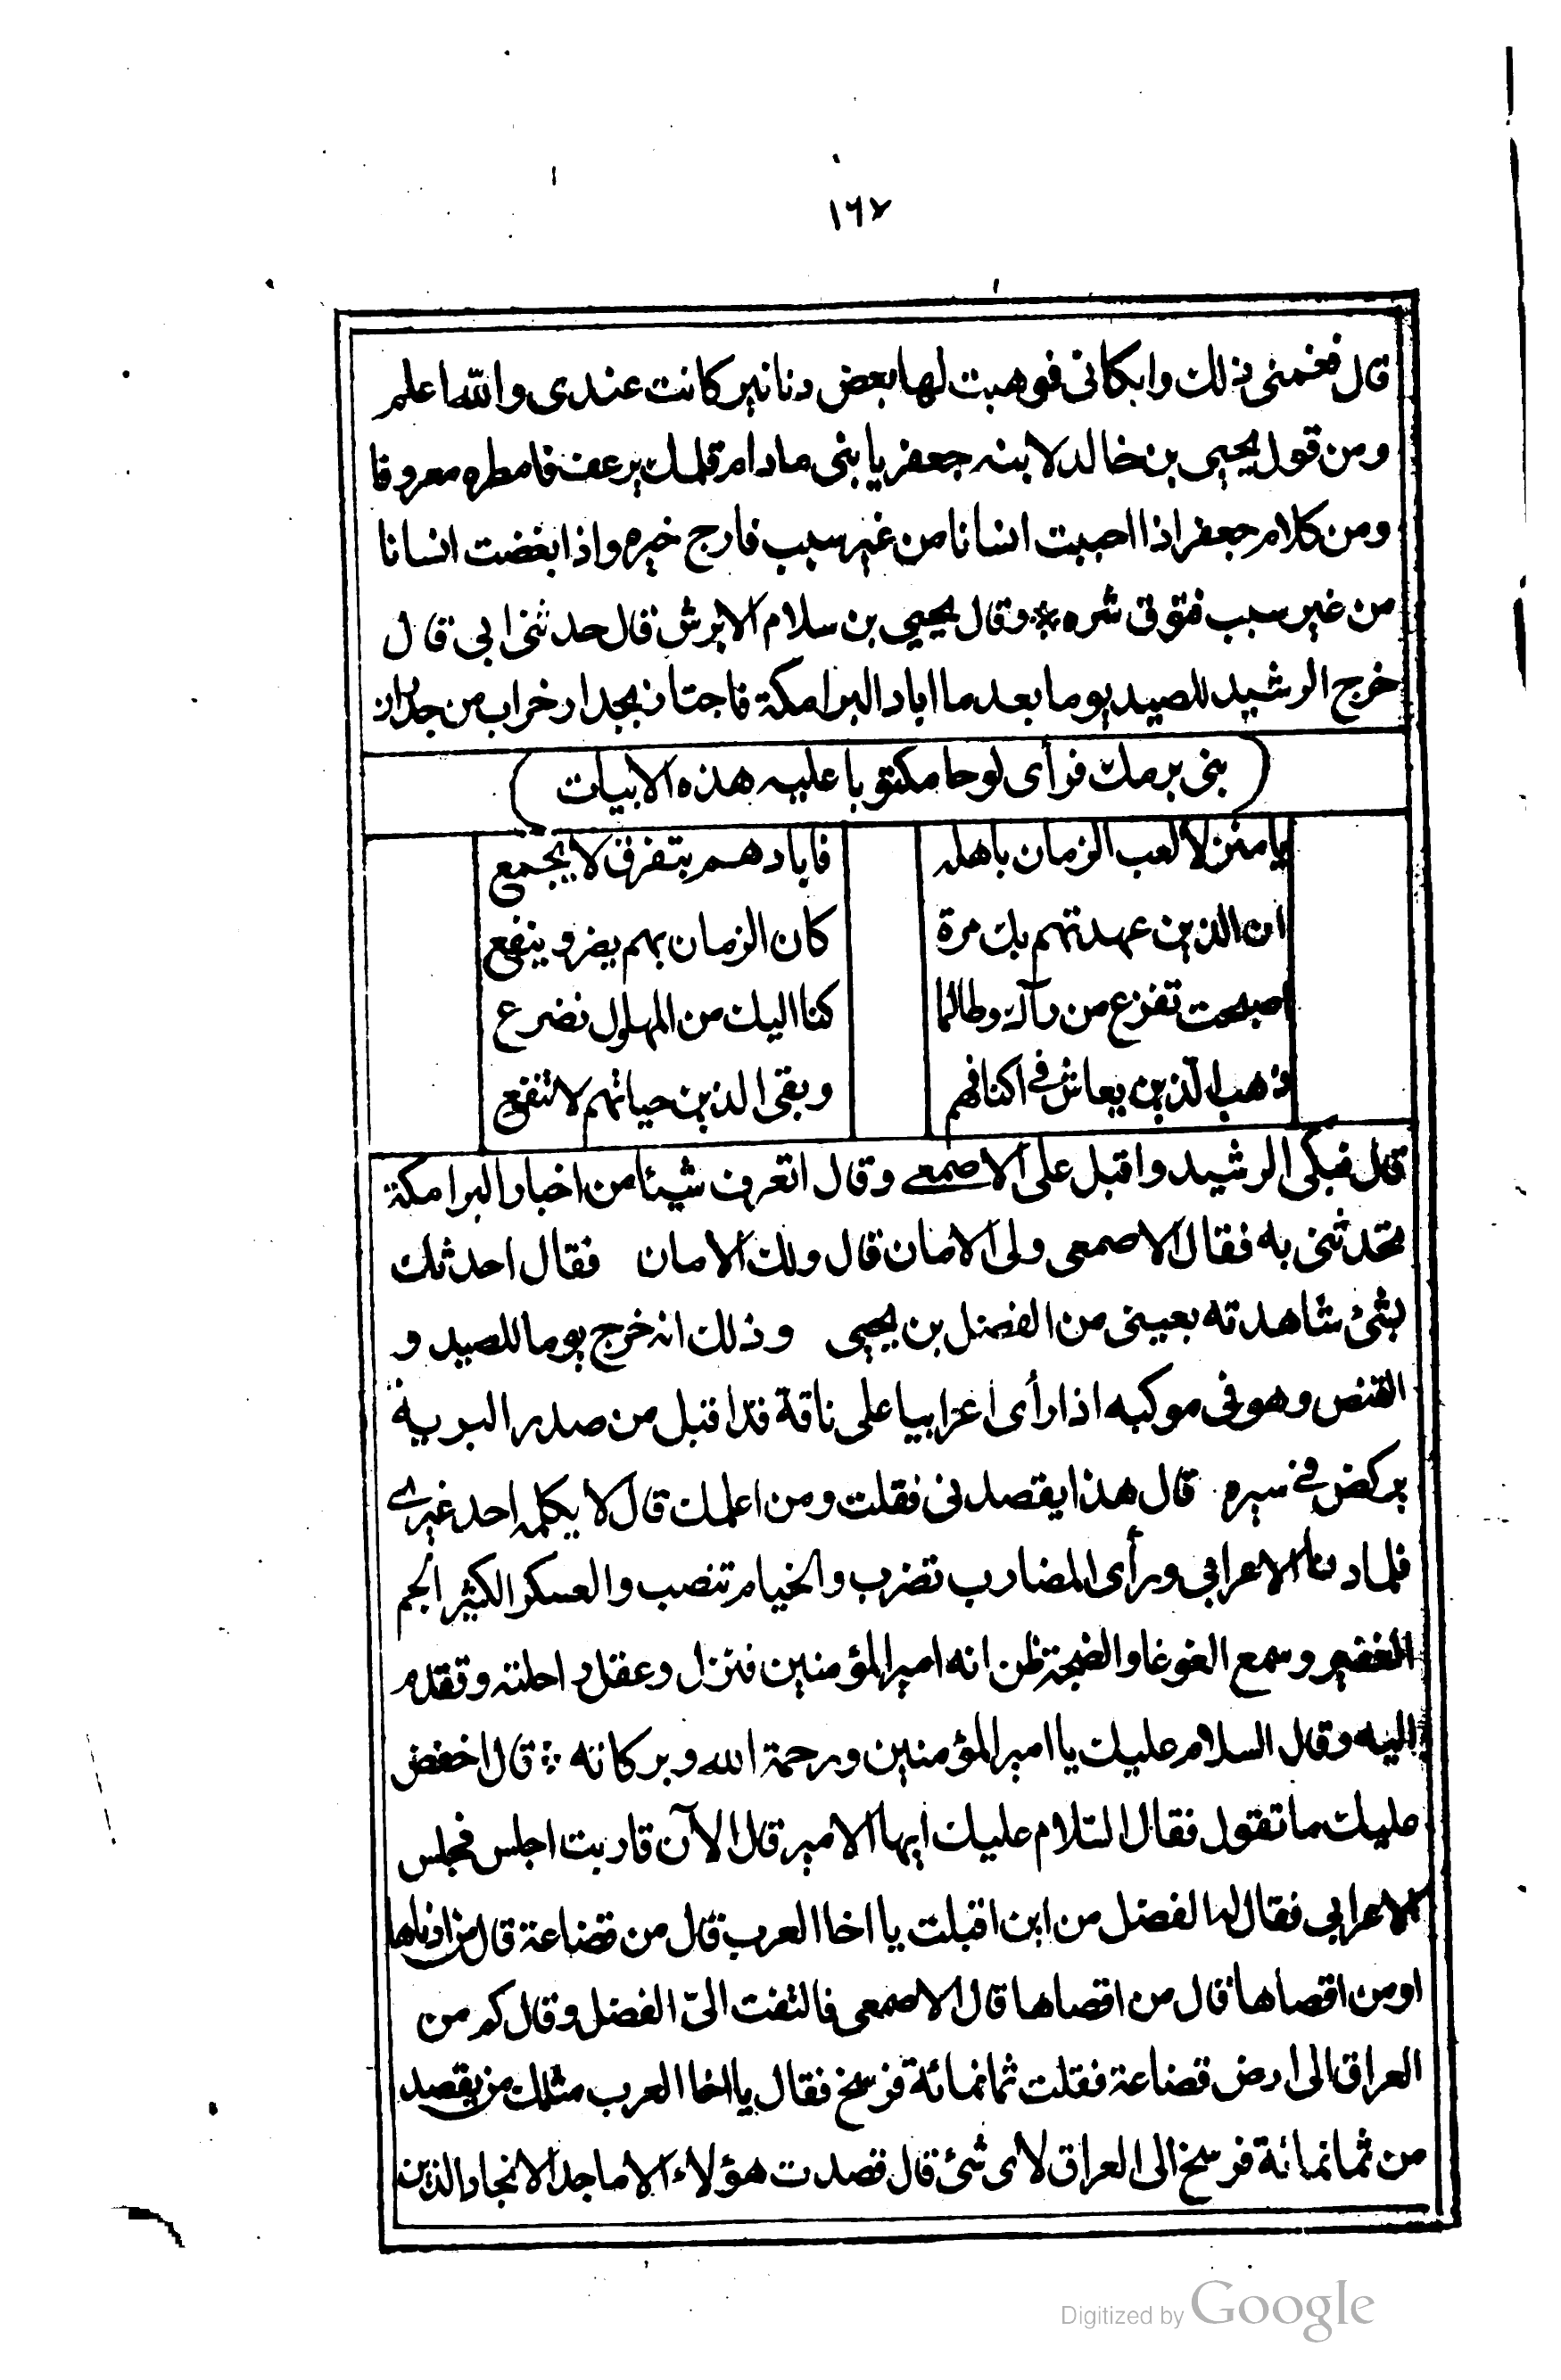 ١٦٧
قال فغمنى ذلك وابكانى فوهبت لها بعض دنانير كانت عندى والله اعلم
ومن قول يحيى بن خالد لابنه جعفر يا بنى مادام قلمك يرعف فامطره معروفا
ومن كلام جعفر اذا احببت انسانا من غير سبب فارج خيره واذا بغضت انسانا
من غير سبب فتوق شره * وقال يحيى بن سلام الابرش قال حدثنى ابى قال
خرج الرشيد للصيد يوما بعد ما اباد البرامكة فاجتاز بجدار خراب من جدران
( بنى برمك فرأى لوحا مكتوبا عليه هذه الابيات )
يا منزلا لعب الزمان باهله فابادهم بتفرق لا يجمع
ان الذين عهدتهم بك مرة كان الزمان بهم يضر وينفع
اصبحت تفزع من رآك وطالما كنا اليك من المهلول نضرع
ذهب الذين يعاش فى اكنافهم وبقى الذين حياتهم لا تنفع
قال فبكى الرشيد واقبل على الاصمعى وقال اتعرف شيئا من اخبار البرامكة
تحدثنى به فقال الاصمعى ولى الامان قال ولك الامان فقال احدثك
بشئ شاهدته بعينى من الفضل بن يحيى وذلك انه خرج يوما للصيد و
القنص وهو فى موكبه اذا رأى اعرابيا على ناقة قد اقبل من صدر البرية
يركض فى سيره قال هذا يقصدنى فقلت ومن اعلمك قال لا يكلمه احد غيرى
فلما دنا الاعرابى ورأى المضارب تضرب والخيام تنصب والعسكر الكثير الجم
الغفير وسمع الغوغا والضجة ظن انه امير المؤمنين فنزل وعقل راحلته وتقدم
اليه وقال السلام عليك يا امير المؤمنين ورحمة الله وبركاته ؞ قال اخفض
عليك ما تقول فقال السّلام عليك ايها الامير قال الآن قاربت اجلس فجلس
الاعرابى فقال له الفضل من اين اقبلت يا اخا العرب قال من قضاعة قال من ادناها
او من اقصاها قال من اقصاها قال الاصمعى فالتفت الىّ الفضل وقال كم من
العراق الى ارض قضاعة فقلت ثمانمائة فرسخ فقال يا اخا العرب مثلك من يقصد
من ثمانمائة فرسخ الى العراق لاى شئ قال قصدت هؤلاء الاماجد الانجاد الذين
Digitized by Google